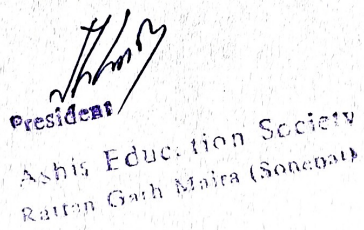 President
Ashis Education Society
Rattan Garh Majra (Sonepat)